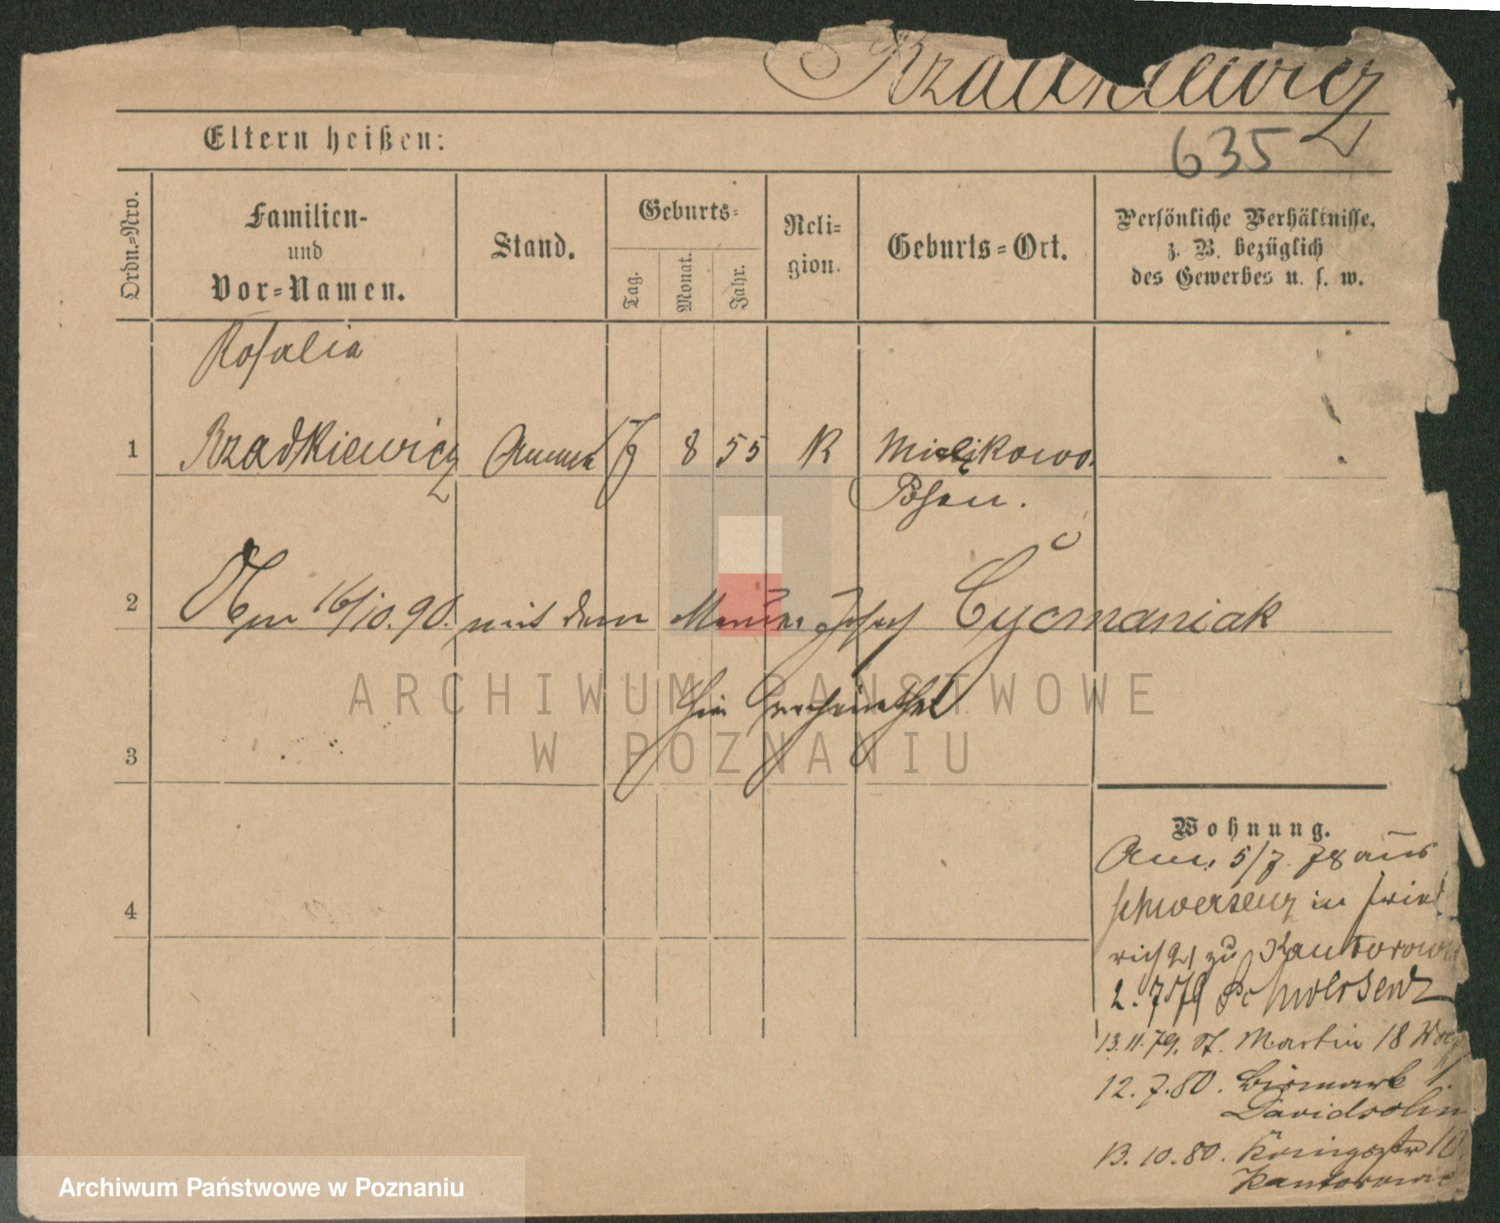 Rzadkiewicz
635
Eltern heißen:
Ordn.-Nro.
Familien-
und
Vor-Namen.
Stand.
Geburts-
Tag.
Monat.
Jahr.
Reli-
gion.
Geburts-Ort.
Persönliche Verhältnisse,
z. B. bezüglich
des Gewerbes u. s. w.
Rosalia
1 Rzadkiewicz Amme 17 8 55 K Mielikowo
Posen.
2 Am 16/10. 90. mit dem Maurer Josef Cucmaniak
hier
3
4
ARCHIWUM PAŃSTWOWE
W POZNANIU
Wohnung.
Am 5/7. 78 aus
Schwersenz in Fried
zu Kantorowi
2. 7/79 Schwersenz
13.11.79. St. Martin 18
12.7.80. Bismark 1.
Davidsohn
13.10.80. Königsstr 10
Kantorowic
Archiwum Państwowe w Poznaniu